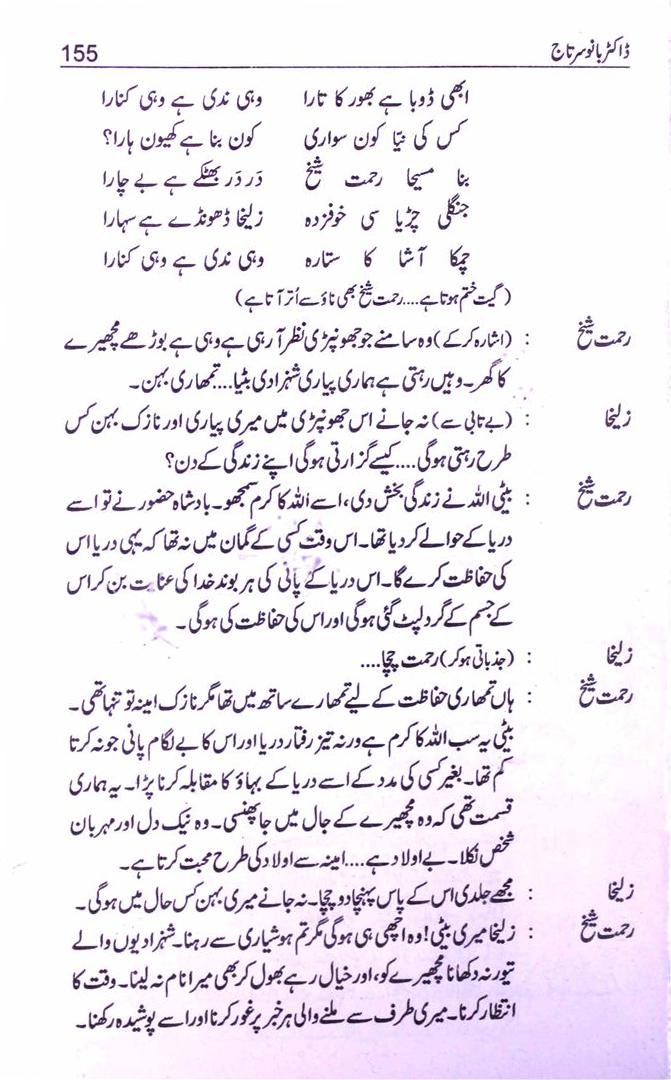 ڈاکٹر بانو سرتاج 155
ابھی ڈوبا ہے بھور کا تارا وہی ندی ہے وہی کنارا
کس کی نیّا کون سواری کون بنا ہے کھیون ہارا؟
بنا مسیحا رحمت شیخ دَر دَر بھٹکے ہے بے چارا
جنگلی چڑیا سی خوفزدہ زلیخا ڈھونڈے ہے سہارا
چمکا آشا کا ستارہ وہی ندی ہے وہی کنارا
(گیت ختم ہوتا ہے....رحمت شیخ بھی ناؤ سے اُتر آتا ہے)
رحمت شیخ : (اشارہ کرکے) وہ سامنے جو جھونپڑی نظر آرہی ہے وہی ہے بوڑھے مچھیرے
کا گھر۔ وہیں رہتی ہے ہماری پیاری شہزادی بٹیا....تمھاری بہن۔
زلیخا : (بے تابی سے) نہ جانے اس جھونپڑی میں میری پیاری اور نازک بہن کس
طرح رہتی ہوگی....کیسے گزارتی ہوگی اپنے زندگی کے دن؟
رحمت شیخ : بیٹی اللہ نے زندگی بخش دی، اسے اللہ کا کرم سمجھو۔ بادشاہ حضور نے تو اسے
دریا کے حوالے کردیا تھا۔ اس وقت کسی کے گمان میں نہ تھا کہ یہی دریا اس
کی حفاظت کرے گا۔ اس دریا کے پانی کی ہر بوند خدا کی عنایت بن کر اس
کے جسم کے گرد لپٹ گئی ہوگی اور اس کی حفاظت کی ہوگی۔
زلیخا : (جذباتی ہوکر) رحمت چچا....
رحمت شیخ : ہاں تمھاری حفاظت کے لیے تمھارے ساتھ میں تھا مگر نازک امینہ تو تنہا تھی۔
بیٹی یہ سب اللہ کا کرم ہے ورنہ تیز رفتار دریا اور اس کا بے لگام پانی جو نہ کرتا
کم تھا۔ بغیر کسی کی مدد کے اسے دریا کے بہاؤ کا مقابلہ کرنا پڑا۔ یہ ہماری
قسمت تھی کہ وہ مچھیرے کے جال میں جا پھنسی۔ وہ نیک دل اور مہربان
شخص نکلا۔ بے اولاد ہے....امینہ سے اولاد کی طرح محبت کرتا ہے۔
زلیخا : مجھے جلدی اس کے پاس پہنچا دو چچا۔ نہ جانے میری بہن کس حال میں ہوگی۔
رحمت شیخ : زلیخا میری بیٹی! وہ اچھی ہی ہوگی مگر تم ہوشیاری سے رہنا۔ شہزادیوں والے
تیور نہ دکھانا مچھیرے کو، اور خیال رہے بھول کر بھی میرا نام نہ لینا۔ وقت کا
انتظار کرنا۔ میری طرف سے ملنے والی ہر خبر پر غور کرنا اور اسے پوشیدہ رکھنا۔